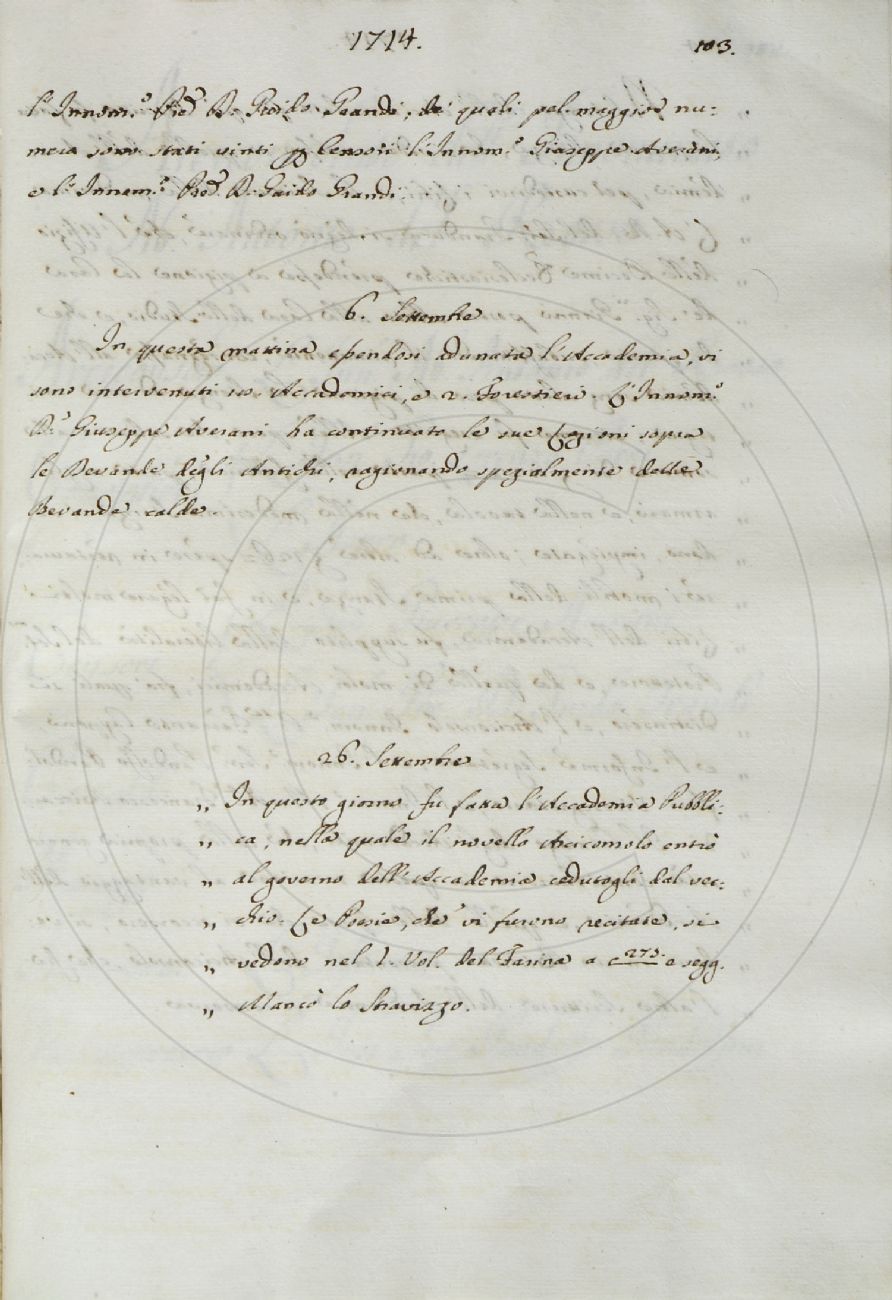 1714.
103.
l'Innom.º Pre͠d D. Guido Grandi, de' quali pel maggior nu:
mero sono stati vinti p Censori l'Innom.º Giuseppe Averani,
e l'Innom.º Pre͠d. D. Guido Grandi.
6. Settembre
In questa mattina essendosi adunata l'Accademia, vi
sono intervenuti 10. Accademici, e 2. Forestieri. L'Innom.º
D.ʳ Giuseppe Averani ha continuato le sue Lezioni sopra
le Bevande degli Antichi, ragionando spezialmente delle
Bevande calde.
26. Settembre
„ In questo giorno fu fatta l'Accademia Pubbli:
„ ca, nella quale il novello Arciconsolo entrò
„ al governo dell'Accademia cedutogli dal vec:
„ chio. Le Poesie, che vi furono recitate, si
„ vedono nel 1. Vol. del Farina a c 273. e segg.
„ Mancò lo Stravizzo.